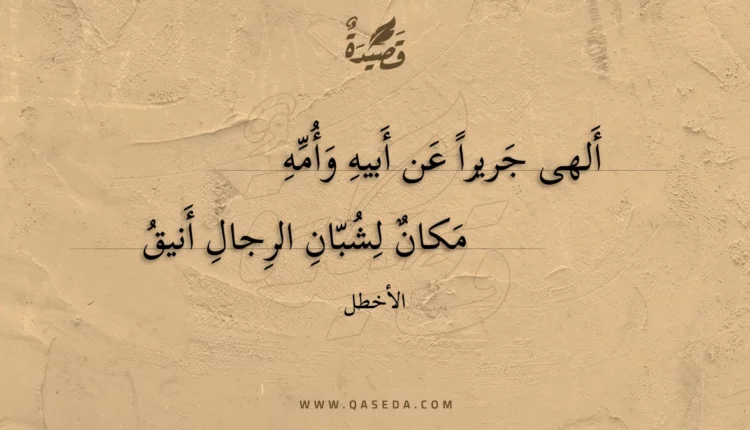 قصيدة
أَلهى جَريراً عَن أَبيهِ وَأُمِّهِ
مَكانٌ لِشُبّانِ الرِجالِ أَنيقُ
الأخطل
WWW.QASEDA.COM